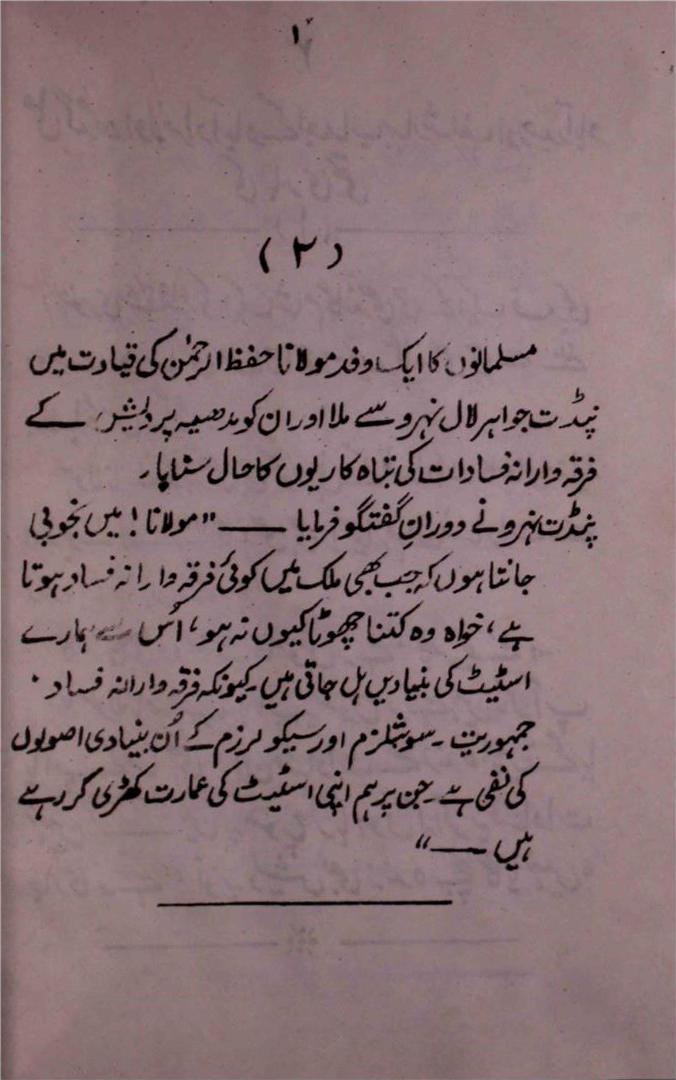 ۱
(۲)
مسلمانوں کا ایک وفد مولانا حفظ الرحمٰن کی قیادت میں
پنڈت جواہر لال نہرو سے ملا اور ان کو مدھیہ پردیش کے
فرقہ وارانہ فسادات کی تباہ کاریوں کا حال سنایا۔
پنڈت نہرو نے دورانِ گفتگو فرمایا —— "مولانا! میں بخوبی
جانتا ہوں کہ جب بھی ملک میں کوئی فرقہ وارانہ فساد ہوتا
ہے، خواہ وہ کتنا چھوٹا کیوں نہ ہو، اُس سے ہمارے
اسٹیٹ کی بنیادیں ہل جاتی ہیں۔ کیونکہ فرقہ وارانہ فساد
جمہوریت۔ سوشلزم اور سیکولرزم کے اُن بنیادی اصولوں
کی نفی ہے۔ جن پر ہم اپنی اسٹیٹ کی عمارت کھڑی کر رہے
ہیں ——"